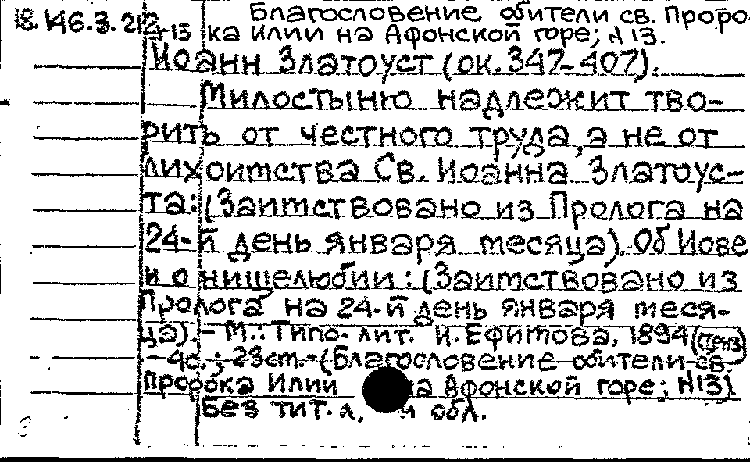 18.146.3.212 Благословение обители св. Проро-
2+13 ка Илии на Афонской горе; N 13.
Иоанн Златоуст (ок. 347-407).
Милостыню надлежит тво-
рить от честного труда, а не от
лихоимства Св. Иоанна Златоус-
та: (Заимствовано из Пролога на
24-й день января месяца). Об Иове
и о нищелюбии: (Заимствовано из
Пролога на 24-й день января меся-
ца). - М.: Типо-лит. И. Ефимова, 1894 (ценз)
- 4с.; 23см. - (Благословение обители св.
Пророка Илии на Афонской горе; N13)
Без тит. л., и обл.